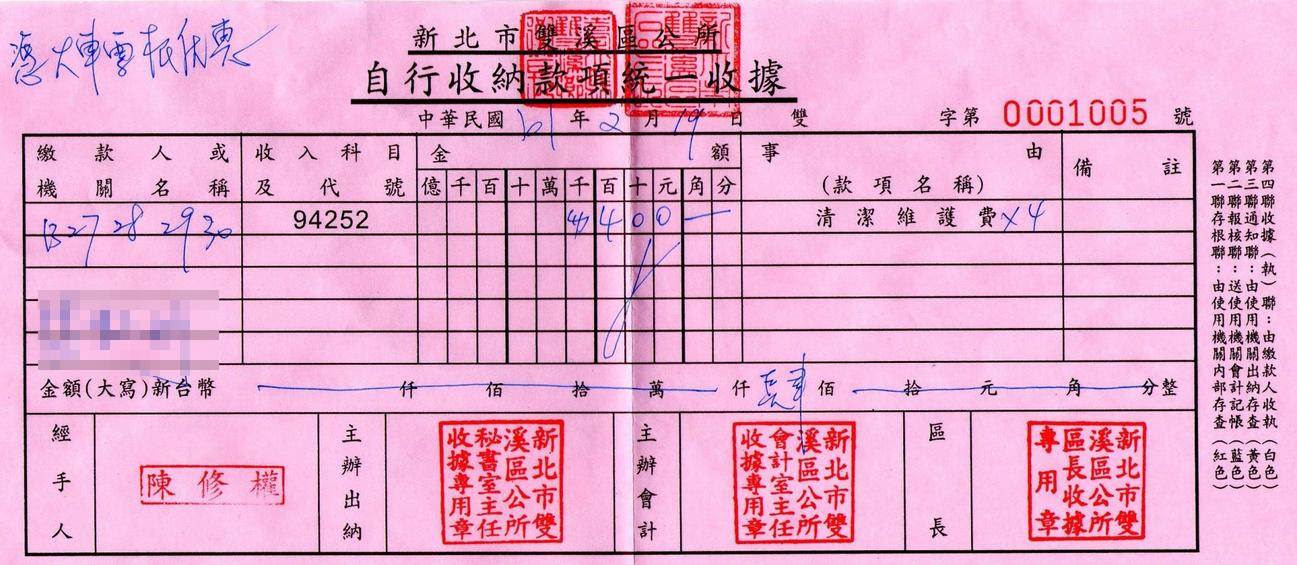 憑火車票根優惠
新北市雙溪區公所
自行收納款項統一收據
中華民國101年2月19日 雙 字第 0001005 號
繳款人或機關名稱 收入科目及代號 金額 事由(款項名稱) 備註
億 千 百 十 萬 千 百 十 元 角 分
B27 28 29 30 94252 400 — 清潔維護費×4
金額(大寫)新台幣 仟 佰 拾 萬 仟 肆 佰 拾 元 角 分整
經手人 陳修權
主辦出納 新北市雙溪區公所秘書室主任收據專用章
主辦會計 新北市雙溪區公所會計室主任收據專用章
區長 新北市雙溪區公所區長收據專用章
第四聯收據(執)聯:由繳款人收執(白色)
第三聯通知聯:由使用機關出納存查(黃色)
第二聯報核聯:送使用機關會計記帳(藍色)
第一聯存根聯:由使用機關內部存查(紅色)